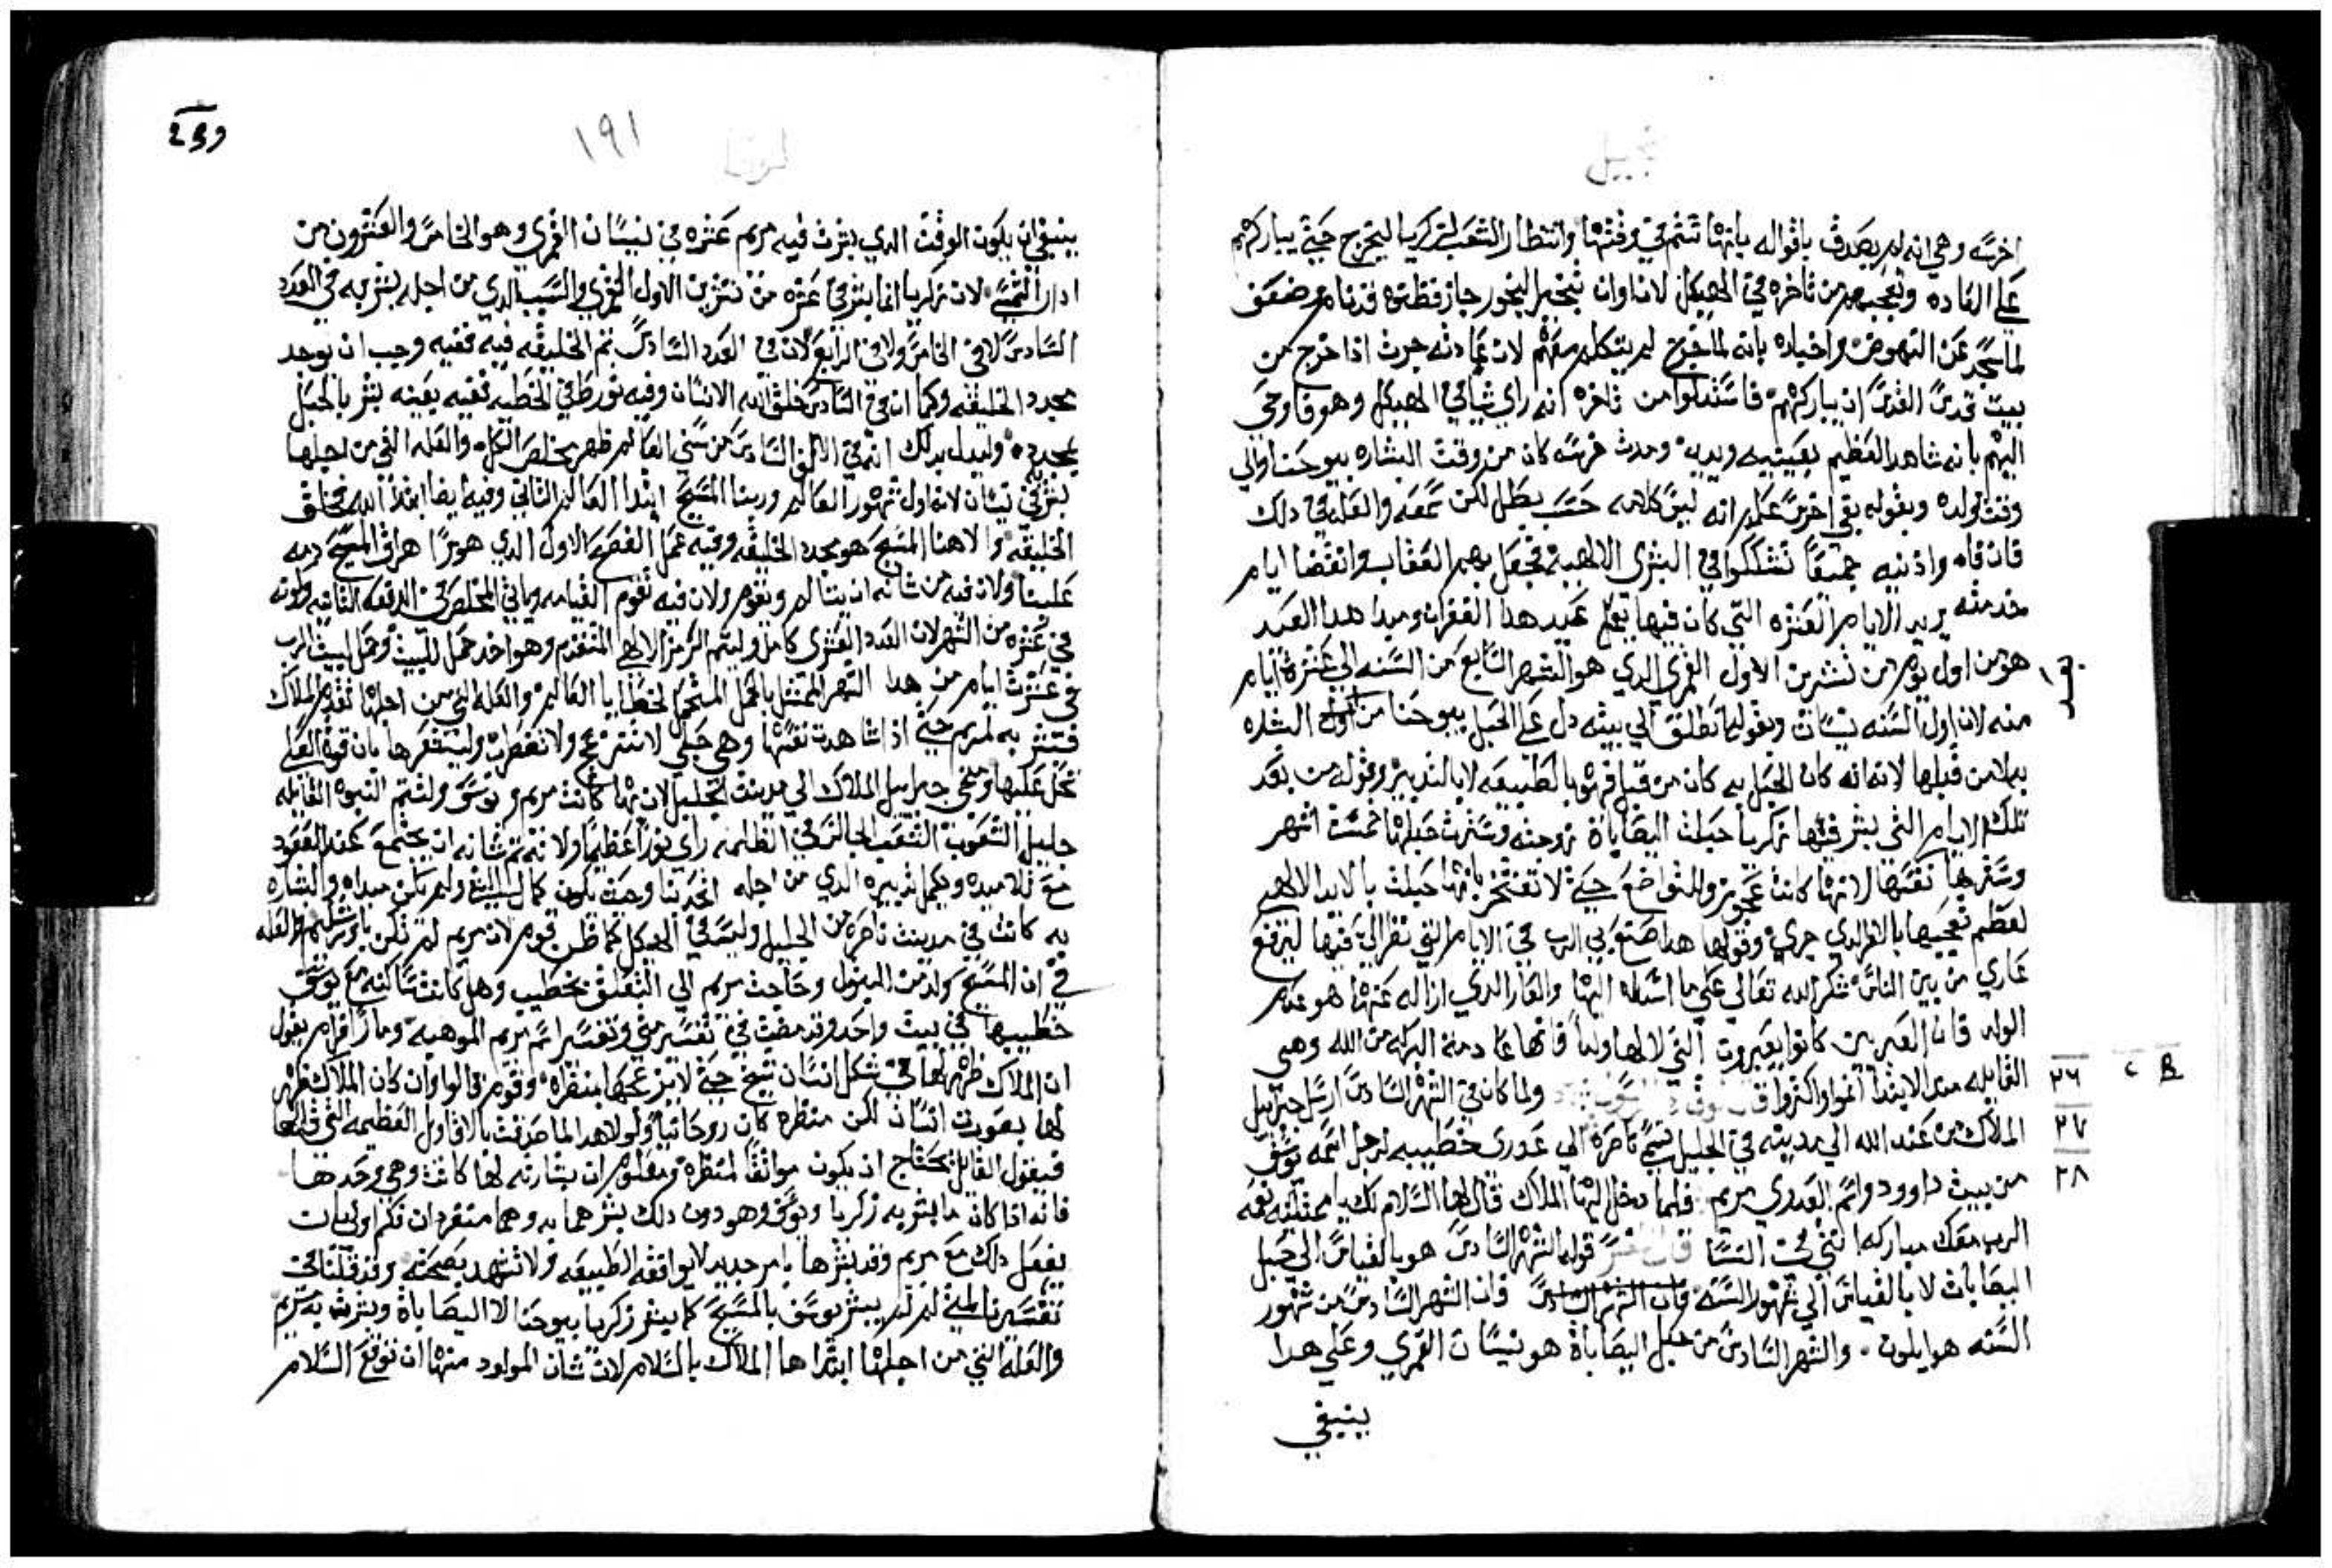 انجيل
اخرسه وهي انه لم يصدق باقواله بانها تتم في وقتها وانتظار الشعب لزكريا ليخرج حتي يباركهم
علي العاده وتعجبهم من تاخره في الهيكل لان اوان تبخير البخور جاز فظنوه قد نام او ضعف
لما سجد عن النهوض واخباره بانه لما خرج لم يتكلم معهم لان عادته جرت اذا خرج من
بيت قدس القدس ان يباركهم فاستدلوا من تاخره انه راي شيا في الهيكل وهو فاوحي
اليهم بانه شاهد العظيم بعينيه ويديه وحدث خرسه كان من وقت البشاره بيوحنا والي
وقت تولده وبقوله بقي اخرس علم انه ليس كلامه حسب بطل لكن سمعه والعله في دلك
فان فاه واذنيه جميعًا تشككوا في البشري الالهيه فجعل بهم العقاب وانقضا ايام
خدمته يريد الايام العشره التي كان فيها يعمل عيد هدا الغفران ومبدا هدا العيد
هو من اول يوم من تشرين الاول القمري الدي هو الشهر السابع من السنه الي عشرة ايام
منه لان اول السنه نيسان وبقوله انطلق الي بيته دل علي الحبل بيوحنا من
بها لا من قبلها لانه انه كان الحبل به كان من قبل قربه بالطبيعه لا بالتدبير وقوله من بعد
تلك الايام التي بشر فيها زكريا حبلت اليصاباة زوجته وسترت حبلها خمست اشهر
وسترها نفسها لانها كانت عجوز وللتواضع حتي لا تفتخر بانها حبلت بالابدا الالهي
لعظم تعجبها بالامر الدي جري وقولها هدا صنع بي الرب في الايام التي نظر الي فيها ليرفع
عاري من بين الناس شكر الله تعالي علي ما اسداه اليها والعار الدي ازاله عنها هو عدم
الولد فان العبرين كانوا يعيرون التي لا لها ولدًا فانها عادمة البركه من الله وهي
القايله مند الابتدا انموا واكثروا ولما كان في الشهر السادس ارسل جبراييل
الملاك من عند الله الي مدينه في الجليل تسمي ناصرة الي عدري خطيبه لرجل اسمه يوسف
من بيت داوود واسم العدري مريم فلما دخل اليها الملاك قال لها السلام لك يا ممتليه نعمه
الرب معك مباركه انتي في النسا قال المفسر قوله الشهر السادس هو بالقياس الي حبل
اليصابات لا بالقياس الي شهور السنه فان الشهر السادس من شهور
السنه هو ايلون . والشهر السادس من حبل اليصاباة هو نيسان القمري وعلي هدا
ينبغي
٢٦
٢٧
٢٨
لوقا
١٩١
ينبغي ان يكون الوقت الدي بشرت فيه مريم عشره في نيسان القمري وهو الخامس والعشرون من
ادار الشمسي لان زكريا انما بشر في عشره من تشرين الاول القمري والسبب الدي من اجله بشر به في العدد
السادس لا في الخامس ولا في الرابع لان في العدد السادس تم الخليقه فيه ففيه وجب ان يوجد
مجدد الخليقه وكما ان في السادس خلق الله الانسان وفيه تورط في الخطيه ففيه بعينه بشر بالحبل
بمجدده وليدل بدلك انه في الالف السادس من سني العالم ظهر مخلص الكل والعله التي من اجلها
بشر في نيسان لانه اول شهور العالم وربنا المسيح ابتدا العالم الثاني وفيه ايضا ابتدا الله بخلق
الخليقه والاهنا المسيح هو مجدد الخليقه وفيه عمل الفصح الاول الدي هو رمز اهراق المسيح دمه
علينا ولان فيه من شانه ان يتالم ويقوم ولان فيه تقوم القيامه وياتي المخلص في الدفعه الثانيه وكونه
في عشره من الشهر لان العدد العشري كامل وليتم الرمز الالهي المتقدم وهو اخد حمل للبيت وحمل لبيت الرب
في عشرت ايام من هدا الشهر الممتثل بالحمل المتحمل لخطايا العالم والعله التي من اجلها تقدم الملاك
فبشر به لمريم حتي اذا شاهدت نفسها وهي حبلي لا تنزعج ولا تضطرب وليشعرها بان قوة العلي
تحل عليها ومجي جبراييل الملاك الي مدينت الجليل لان بها كانت مريم ويوسف ولتتم النبوه القايله
جليل الشعوب الشعب الجالس في الظلمه راي نورًا عظيمًا ولانه تم شانه ان يجتمع عند القعود
مع تلاميده ويكمل تدبيره الدي من اجله اتحد بنا وحيث يكون كمال الشي ولم يكن مبداه والبشاره
به كانت في مدينت ناصره من الجليل وليست في الهيكل كما ظن قوم لان مريم لم تكن باورشليم والعله
في ان المسيح ولد من البتول وحاجت مريم الي التعلق بخطيب وهل كانت ساكنه مع يوسف
خطيبها في بيت واحد وقد مضت في تفسير متي وتفسير اسم مريم الموهبه ومار افرام يقول
ان الملاك ظهر لها في شكل انسان شيخ حتي لا يزعجها بمنظره وقوم قالوا وان كان الملاك ظهر
لها بصورت انسان لكن منظره كان روحانيًا ولولا هدا لما صدقت بالاقاويل العظيمه التي قالها
فيقول القايل يحتاج ان يكون موافقًا لمنظره ومعلوم ان بشارته لها كانت وهي وحدتها
فانه ادا كان ما بشر به زكريا ويوسف وهو دون دلك بشرهما به وهما منفردان فكم اولي ان
يفعل دلك مع مريم وقد بشرها بامر جديد لا يوافقه الطبيعه ولا تشهد بصحته وقد قلنا في
تفسيرنا لمتي لم لم يبشر يوسف بالمسيح كما بشر زكريا بيوحنا لا اليصاباة وبشرت به مريم
والعله التي من اجلها ابتدا ها الملاك بالسلام لان شان المولود منها ان نوقع السلام